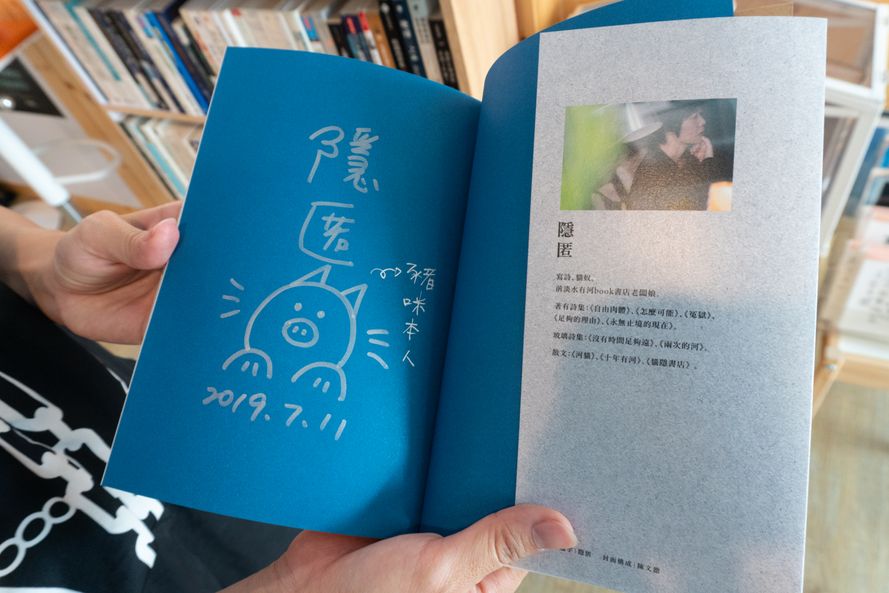 隱
匿
豬咪本人
2019.7.11
隱
匿
寫詩。貓奴。
前淡水有河book書店老闆娘。
著有詩集:《自由肉體》、《怎麼可能》、《冤獄》、
《足夠的理由》、《永無止境的現在》。
玻璃詩集:《沒有時間足夠遠》、《兩次的河》。
散文:《河貓》、《十年有河》、《貓隱書店》。
隱匿 封面構成|陳文德